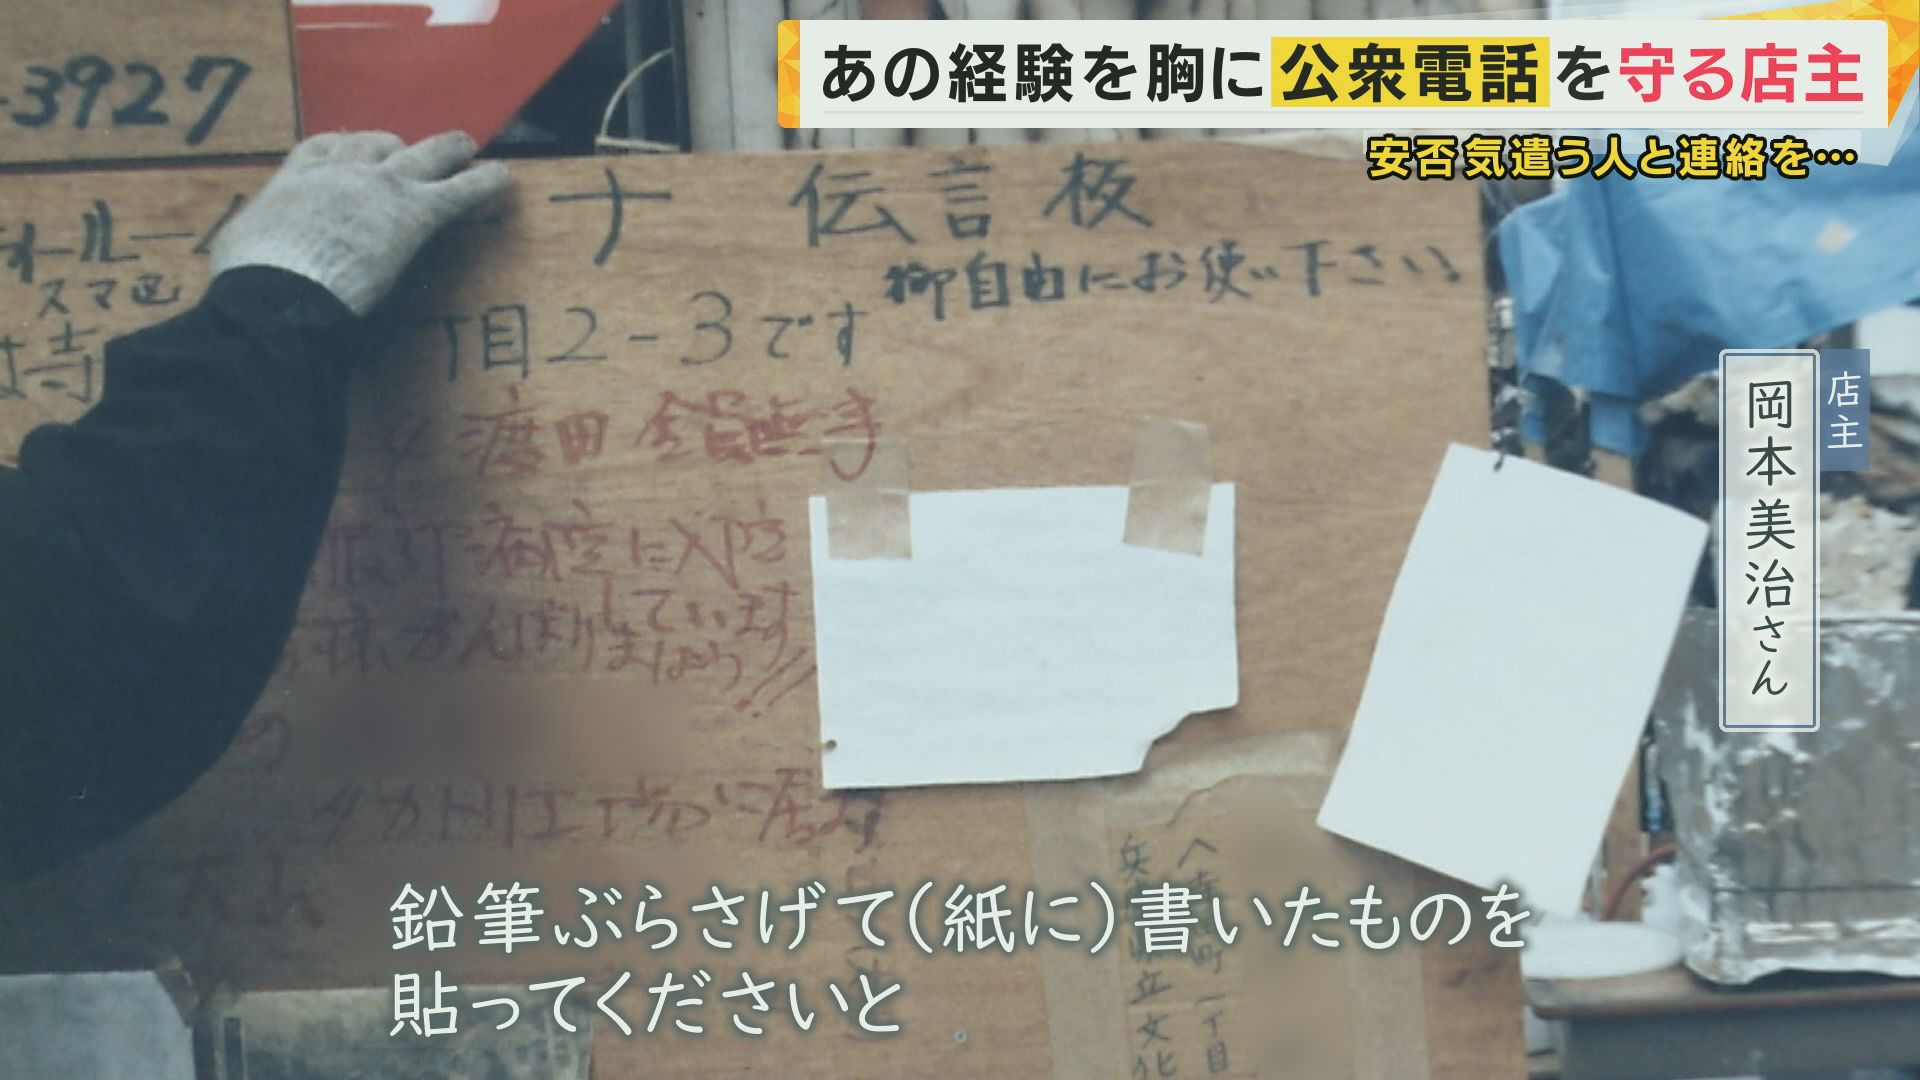 あの経験を胸に公衆電話を守る店主
安否気遣う人と連絡を…
店主
岡本美治さん
-3927
ナ 伝言板
御自由にお使い下さい
丁目2-3です
スマ
渡田 全員無事
病院に入院
しています
がんばりましょう!!
タカトリ工場に居ます
立文化
一丁目
鉛筆ぶらさげて（紙に）書いたものを
貼ってくださいと